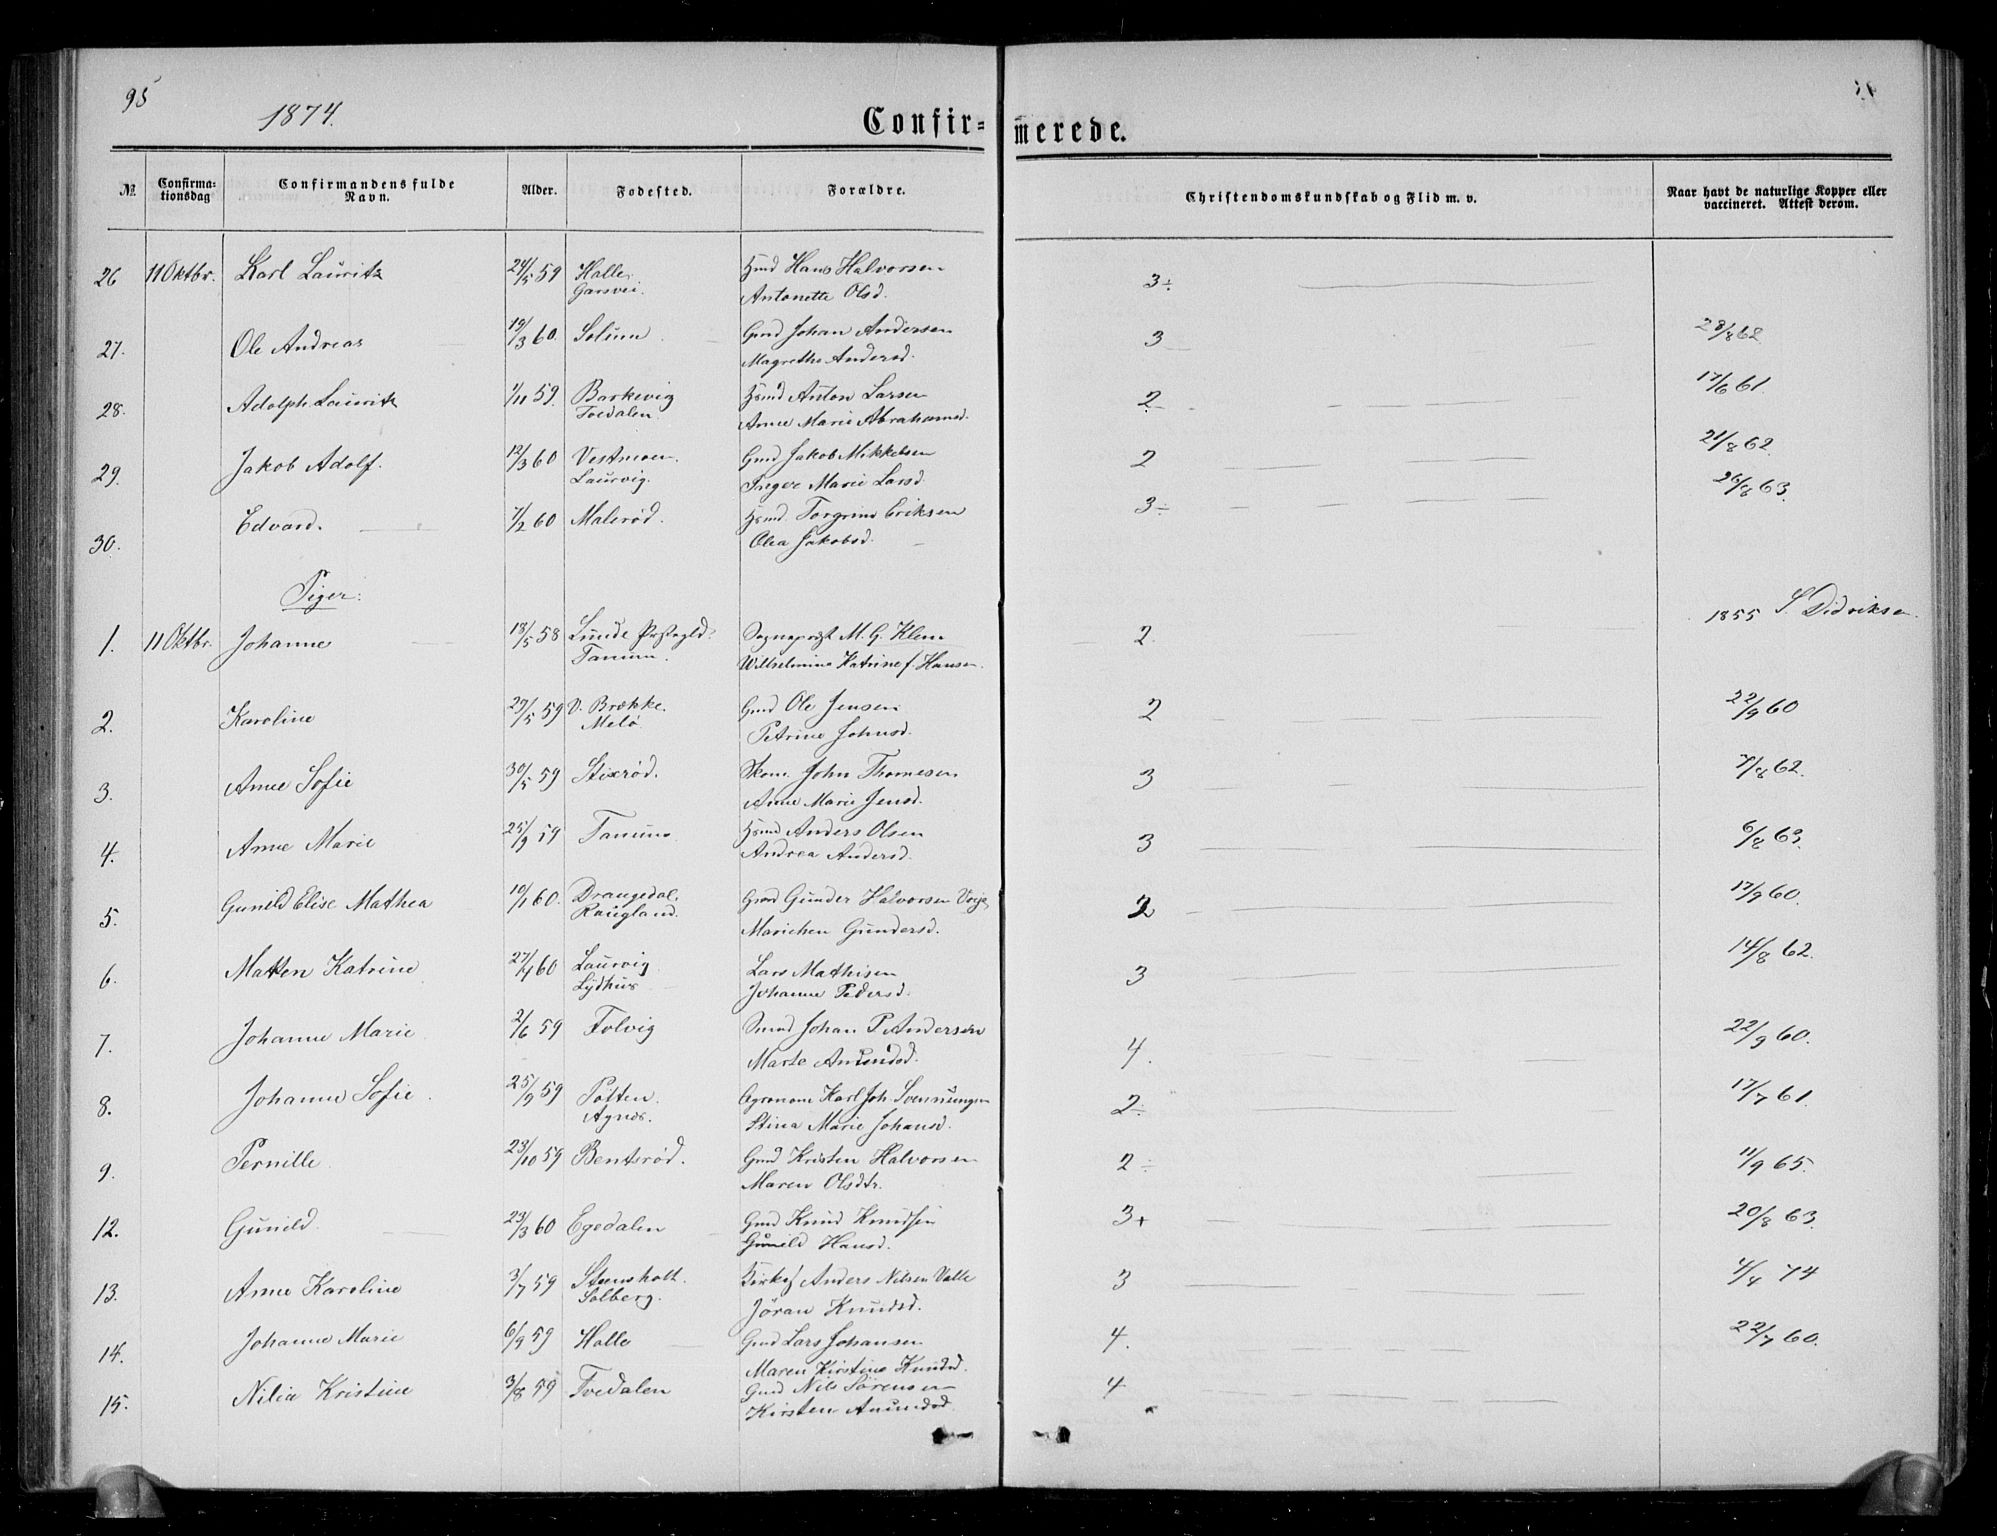 95
1874.
Confir= merede.
No. Confirma-tionsdag Confirmandens fulde Navn. Alder. Fødested. Forældre. Christendomskundskab og Flid m. v. Naar havt de naturlige Kopper eller vaccineret. Attest derom.
26 11 Oktbr. Karl Lauritz 24/5 59 Halle Hmd Hans Halvorsen 3÷
Garsvei. Antonette Olsd.
27. Ole Andreas 19/3 60. Solum Gmd Johan Andersen 3 28/8 62
Magrethe Andersd.
28. Adolph Lauritz 1/11 59. Barkevig Hsmd Anton Larsen 2 17/6 61.
Tvedalen. Anne Marie Abrahamsd.
29. Jakob Adolf. 12/3 60 Vestmoen. Gmd Jakob Mikkelsen 2 21/8 62.
Laurvig. Inger Marie Larsd.
30. Edvard. 7/2 60 Malerød. Hsmd. Torgrim Eriksen 3÷ 26/8 63.
Olea Jakobsd.
Piger:
1. 11 Oktbr. Johanne 18/5 58 Lunde Prstgld. Sognepræst M. G. Klem 2. 1855 S Didriksen
Tanum. Wilhelmine Katrine f. Hansen.
2. Karoline 27/5 59 V. Brække. Gmd Ole Jensen 2 22/9 60
Melø. Petrine Johnsd.
3. Anne Sofie 30/5 59 Stixrød. Skom. John Thomesen 3 7/8 62.
Anne Marie Jensd.
4. Anne Marie 25/9 59 Tanum Hsmd Anders Olsen 3 6/8 63.
Andrea Andersd.
5. Gunild Elise Mathea 10/1 60. Drangedal. Grd Gunder Halvorsen 2 17/9 60.
Raugland. Marichen Gundersd.
6. Matten Katrine 27/4 60 Laurvig Lars Mathisen 3 14/8 62.
Lydhus Johanne Pedersd.
7. Johanne Marie 2/6 59 Folvig Smd Johan P. Andersen 4. 22/9 60.
Marte Amundsd.
8. Johanne Sofie. 25/9 59 Potten. Agronom Karl Joh. Svennungsen 2÷ 17/7 61.
Agnes. Stina Marie Johansd.
9. Pernille 23/10 59 Bentsrød. Gmd Kristen Halvorsen 2÷ 11/9 65.
Maren Olsdtr.
12. Gunild. 23/3 60 Egedalen Gmd Knud Knudsen 3+ 20/8 63.
Gunild Hansd.
13. Anne Karoline 3/7 59 Steensholt. Anders Nilsen Valle 3 4/4 74
Solberg. Jøran Knudsd.
14. Johanne Marie 6/9 59 Halle Gmd Lars Johansen 4. 22/7 60.
Maren Kirstine Knudsd.
15. Nilia Kristine 3/8 59 Tvedalen Gmd Nils Sørensen 4
Kirsten Amundsd.